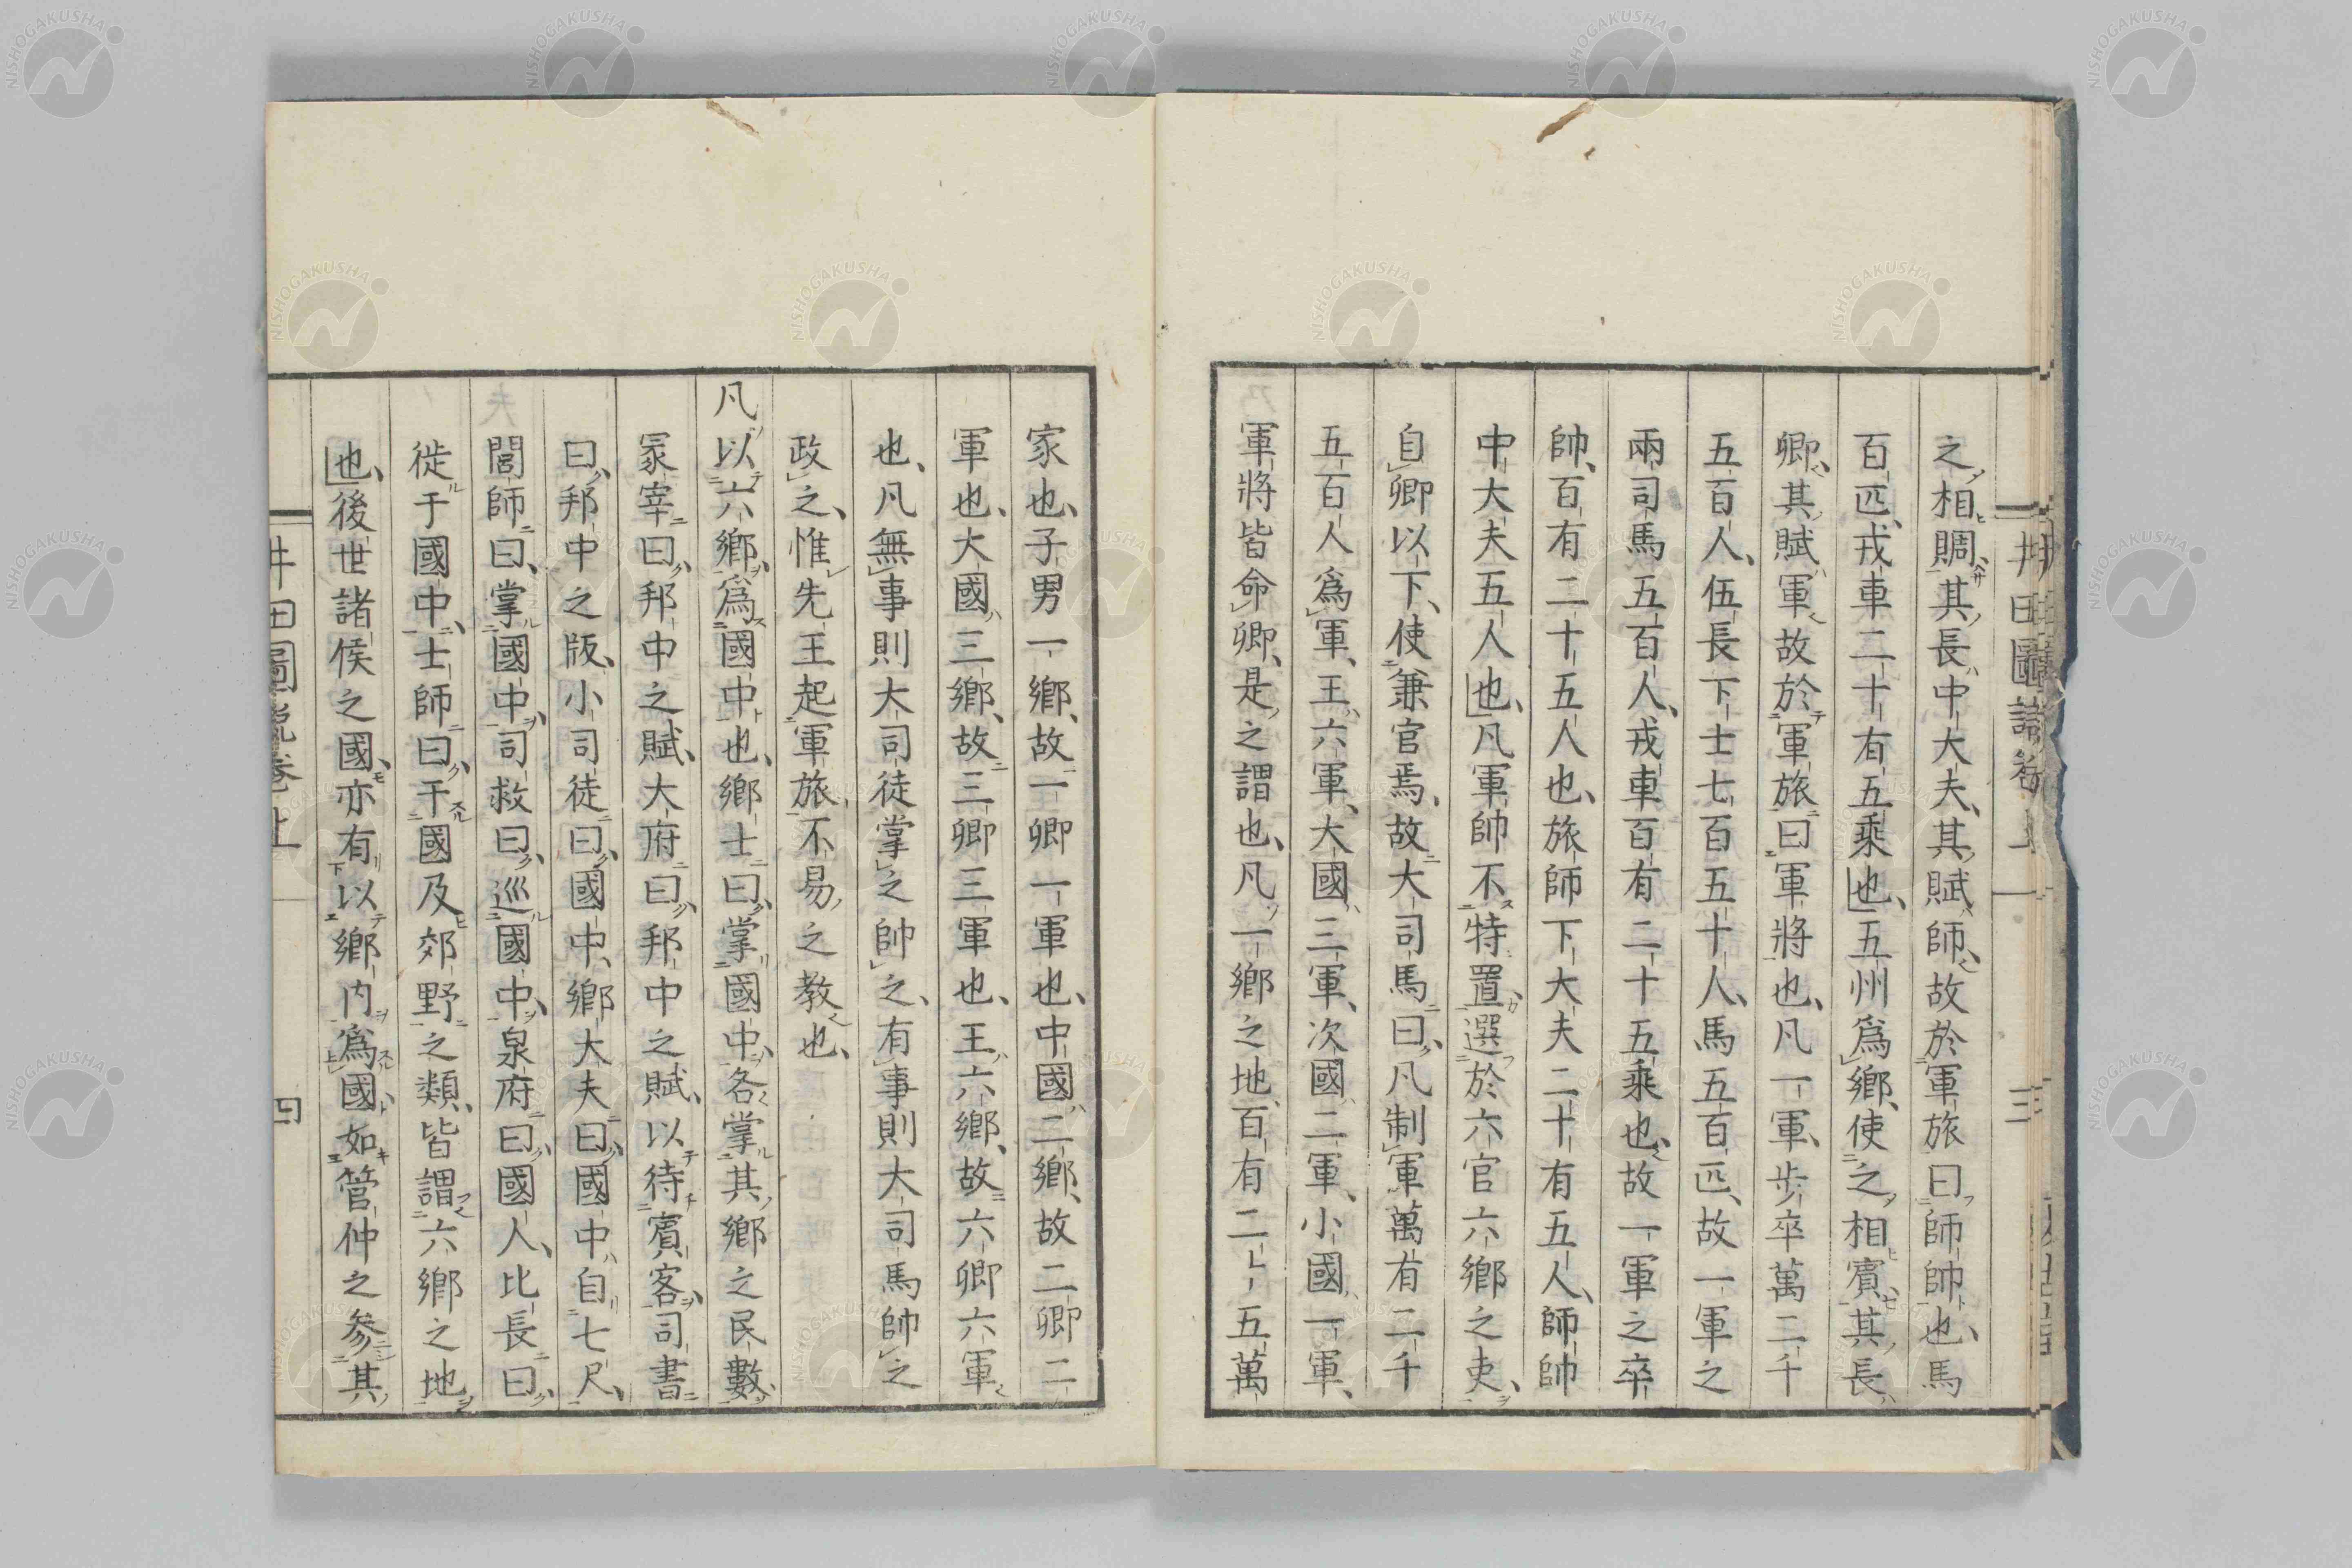 井田圖説卷上 三
之相賙其長中大夫、其賦師、故於軍旅曰師帥也、馬
百匹、戎車二十有五乘也、五州爲鄉、使之相賓、其長
卿、其賦軍、故於軍旅曰軍將也、凡一軍、步卒萬二千
五百人、伍長下士七百五十人、馬五百匹、故一軍之
兩司馬五百人、戎車百有二十五乘也、故一軍之卒
帥、百有二十五人也、旅師下大夫二十有五人、師帥
中大夫五人也、凡軍帥不特置、選於六官六鄉之吏、
自卿以下、使兼官焉、故大司馬曰、凡制軍萬有二千
五百人爲軍、王六軍、大國三軍、次國二軍、小國一軍、
軍將皆命卿、是之謂也、凡一鄉之地、百有二十五萬
家也、子男一鄉、故一卿一軍也、中國二鄉、故二卿二
軍也、大國三鄉、故三卿三軍也、王六鄉、故六卿六軍
也、凡無事則大司徒掌之帥之、有事則大司馬帥之
政之、惟先王起軍旅不易之教也、
凡以六鄉、爲國中也、鄉士曰、掌國中、各掌其鄉之民數
冢宰曰、邦中之賦、大府曰、邦中之賦、以待賓客、司書
曰、邦中之版、小司徒曰、國中、鄉大夫曰、國中自七尺、
閭師曰、掌國中、司救曰、巡國中、泉府曰、國人、比長曰、
徙于國中、士師曰、干國及郊野之類、皆謂六鄉之地
也、後世諸侯之國、亦有以鄉内爲國、如管仲之參其
井田圖説卷上 四